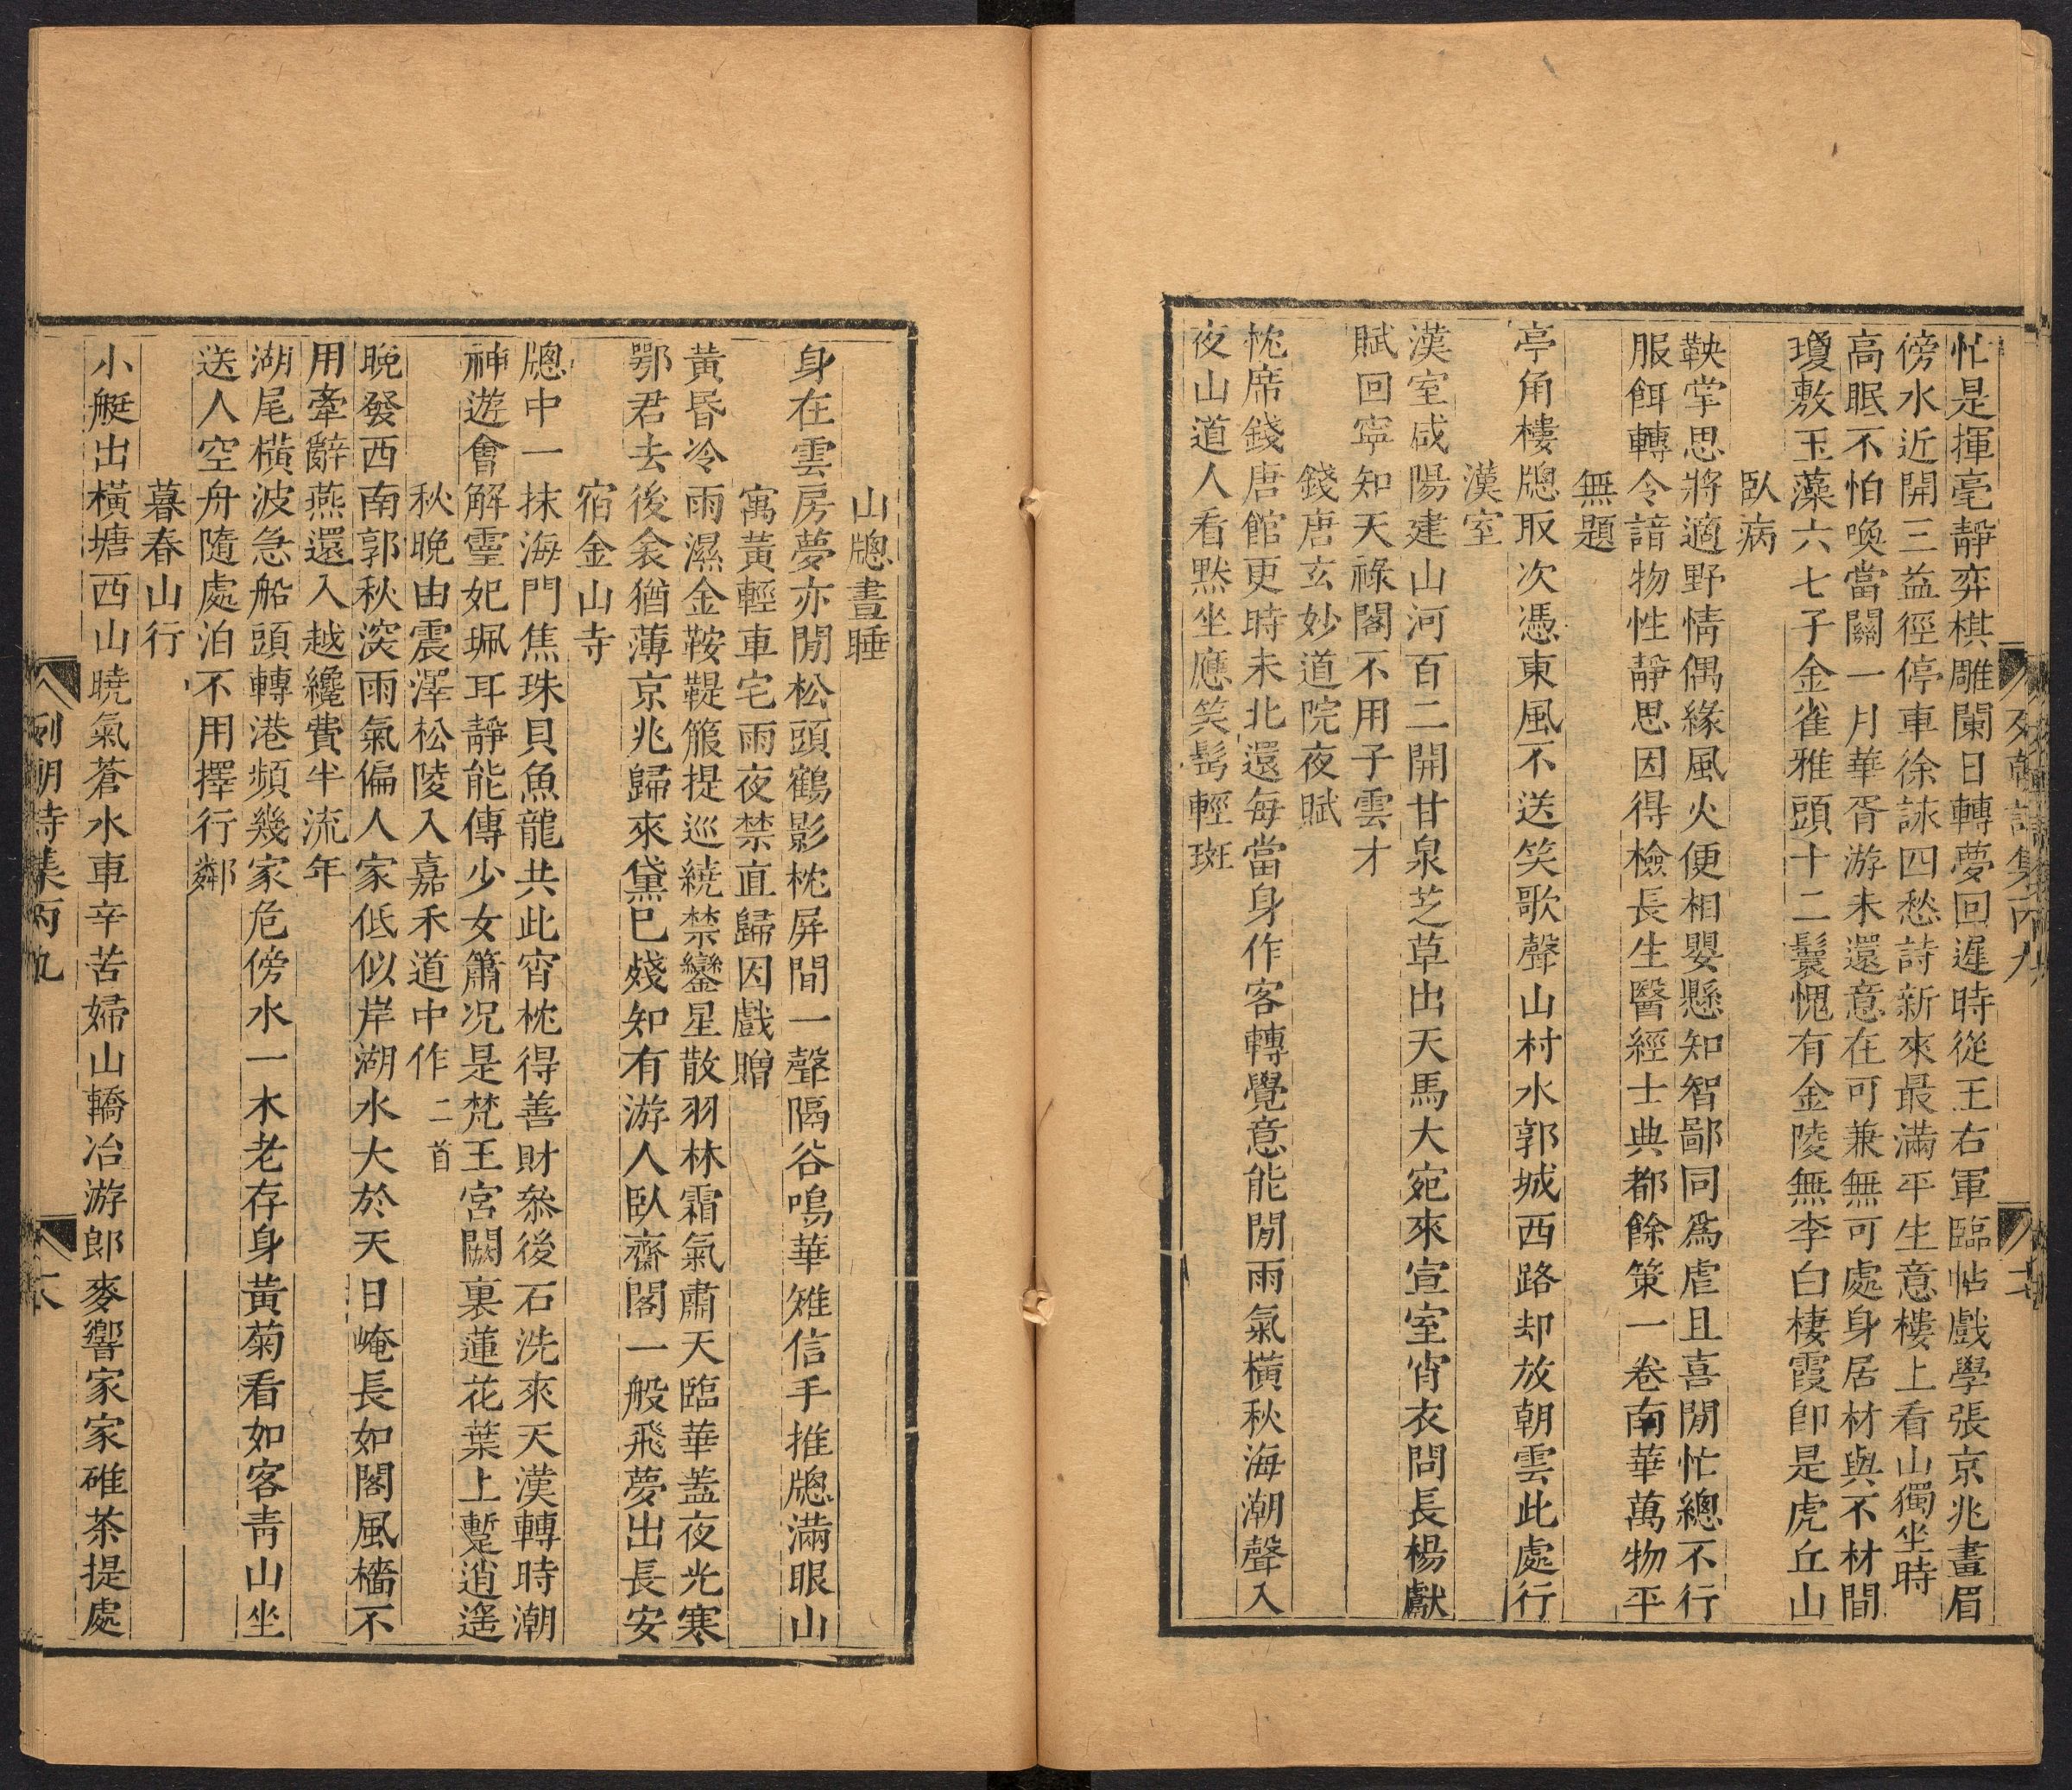 忙是揮毫靜弈棋雕闌日轉夢回遲時從王右軍臨帖戲學張京兆畫眉
傍水近開三益徑停車徐詠四愁詩新來最滿平生意樓上看山獨坐時
高眠不怕喚當關一月華胥游未還意在可兼無可處身居材與不材間
瓊敷玉藻六七子金雀雅頭十二鬟愧有金陵無李白棲霞卽是虎丘山
臥病
鞅掌思將適野情偶緣風火便相嬰懸知智鄙同爲虐且喜閒忙總不行
服餌轉令諳物性靜思因得檢長生醫經士典都餘策一卷南華萬物平
無題
亭角樓牕取次憑東風不送笑歌聲山村水郭城西路却放朝雲此處行
漢室
漢室咸陽建山河百二開甘泉芝草出天馬大宛來宣室宵衣問長楊獻
賦回寧知天祿閣不用子雲才
錢唐玄妙道院夜賦
枕席錢唐館更時未北還每當身作客轉覺意能閒雨氣橫秋海潮聲入
夜山道人看默坐應笑髩輕斑
山牕晝睡
身在雲房夢亦閒松頭鶴影枕屏間一聲隔谷鳴華雉信手推牕滿眼山
寓黃輕車宅雨夜禁直歸因戲贈
黃昏冷雨濕金鞍鞮箙提巡繞禁鑾星散羽林霜氣肅天臨華蓋夜光寒
鄂君去後衾猶薄京兆歸來黛已殘知有游人臥齋閣一般飛夢出長安
宿金山寺
牕中一抹海門焦珠貝魚龍共此宵枕得善財叅後石洗來天漢轉時潮
神遊會解霊妃珮耳靜能傳少女簫况是梵王宮闕裏蓮花葉上蹔逍遙
秋晚由震澤松陵入嘉禾道中作二首
晚發西南郭秋深雨氣偏人家低似岸湖水大於天日崦長如閣風檣不
用牽辭燕還入越纔費半流年
湖尾橫波急船頭轉港頻幾家危傍水一木老存身黃菊看如客靑山坐
送人空舟隨處泊不用擇行鄰
暮春山行
小艇出橫塘西山曉氣蒼水車辛苦婦山轎冶游郎麥響家家碓茶提處
列朝詩集丙九